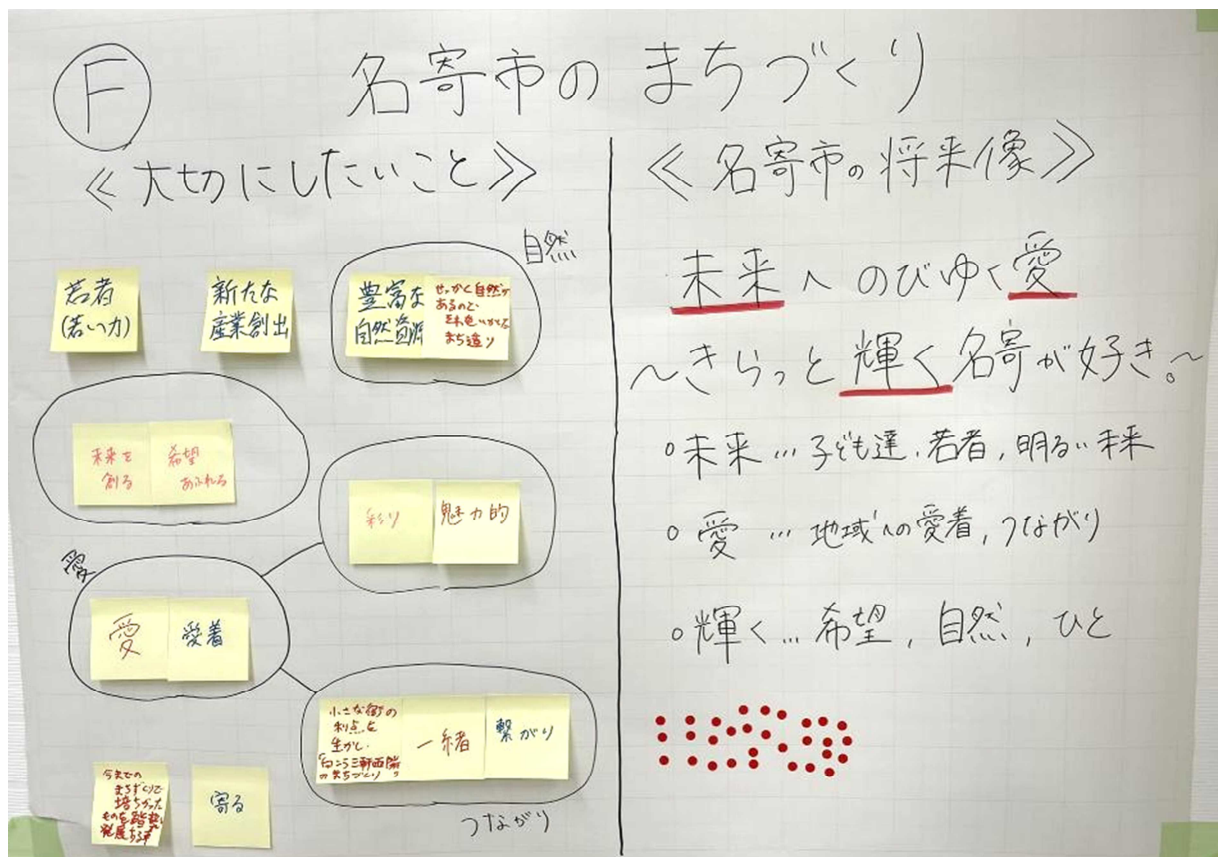 F
名寄市のまちづくり
≪大切にしたいこと≫
自然
若者
(若い力)
新たな
産業創出
豊富な
自然資源
せっかく自然が
あるので
それをいかせる
まち造り
未来を
創る
希望
あふれる
彩り
魅力的
愛
愛
愛着
小さな街の
利点を
生かし
「向こう三軒両隣」
のまちづくり
一緒
繋がり
つながり
今までの
まちづくりで
培ちかった
ものを踏襲し
発展する事
寄る
≪名寄市の将来像≫
未来へのびゆく愛
〜きらっと輝く名寄が好き。〜
○未来…子ども達、若者,明るい未来
○愛…地域への愛着,つながり
○輝く…希望,自然,ひと